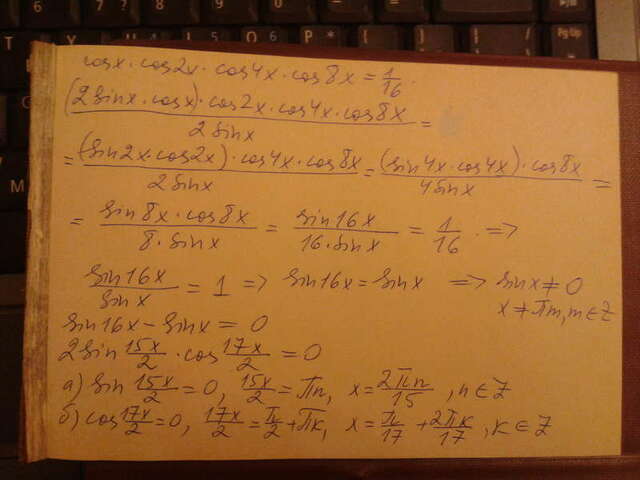 cosx·cos2x·cos4x·cos8x = 1/16.
(2sinx·cosx)·cos2x·cos4x·cos8x / 2sinx =
= (sin2x·cos2x)·cos4x·cos8x / 2sinx = (sin4x·cos4x)·cos8x / 4sinx =
= sin8x·cos8x / 8·sinx = sin16x / 16·sinx = 1/16 . =>
sin16x / sinx = 1 => sin16x = sinx => sinx ≠ 0
x ≠ πm, m ∈ Z
sin16x - sinx = 0
2sin 15x/2 · cos 17x/2 = 0
а) sin 15x/2 = 0, 15x/2 = πn, x = 2πn/15, n ∈ Z
б) cos 17x/2 = 0, 17x/2 = π/2 + πk, x = π/17 + 2πk/17, k ∈ Z